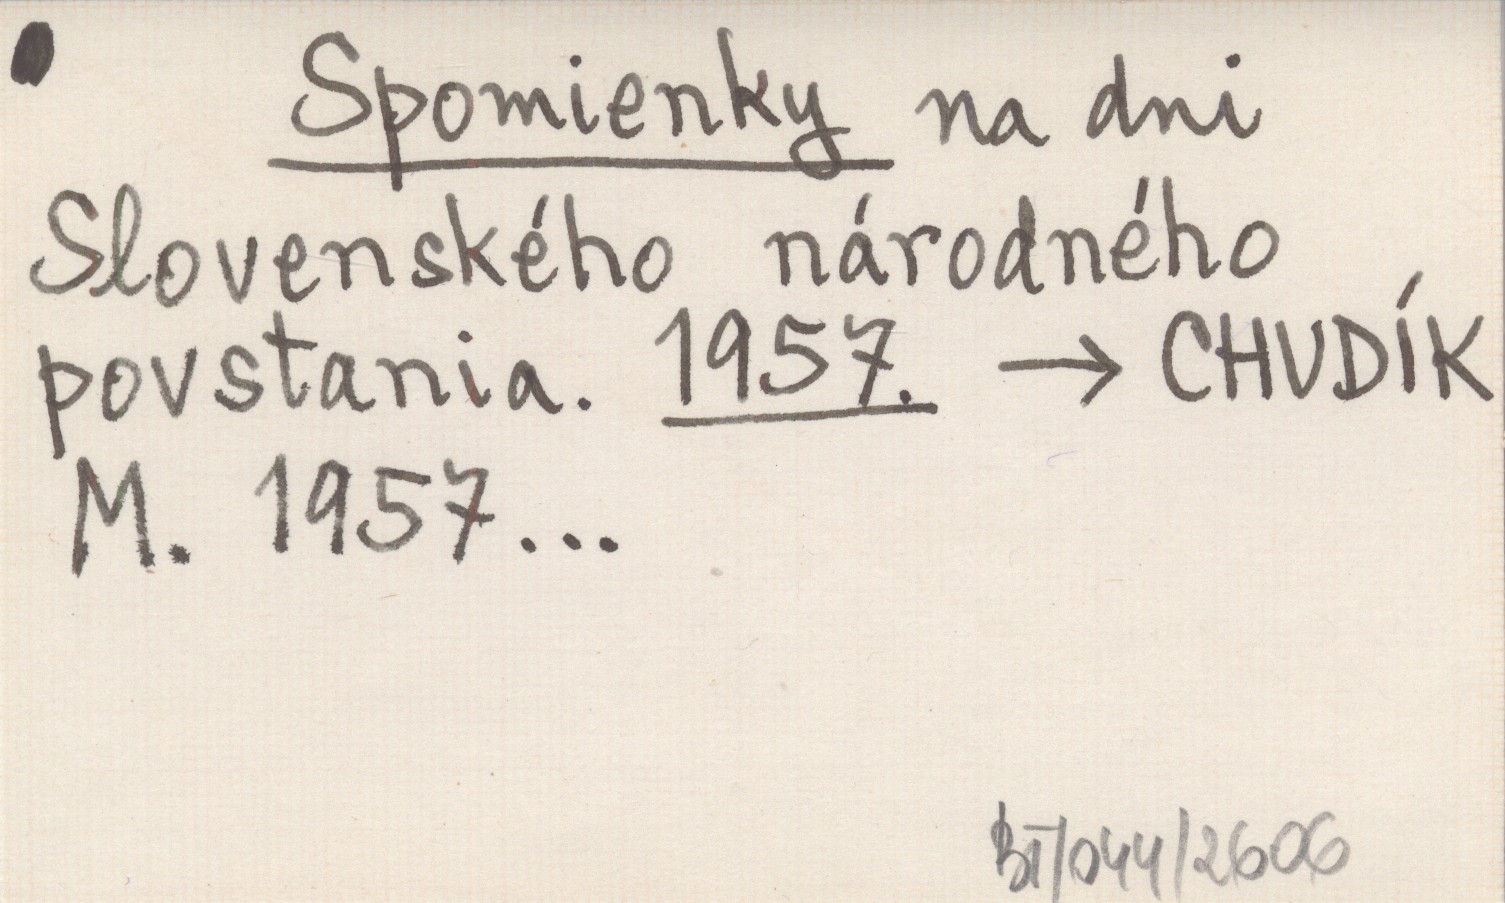 Spomienky na dni
Slovenského národného
povstania. 1957. → CHUDÍK
M. 1957...
BI/044/2606